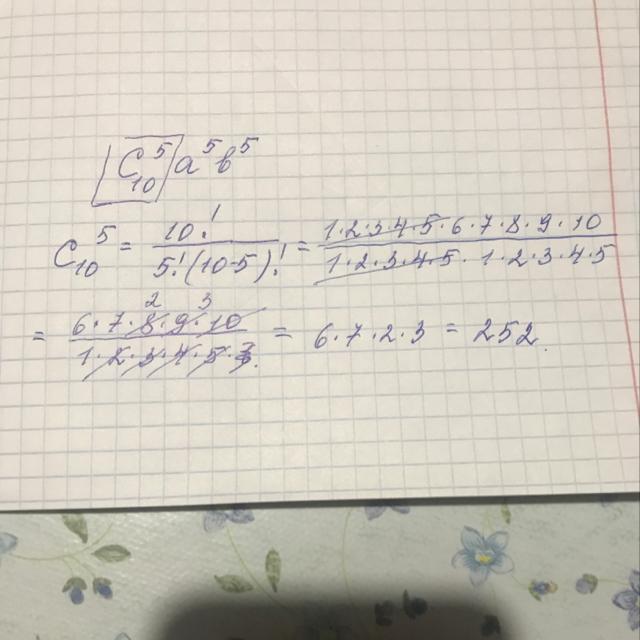 C₁₀⁵ a⁵ b⁵
C₁₀⁵ = 10! / 5!(10-5)! = 1·2·3·4·5·6·7·8·9·10 / 1·2·3·4·5·1·2·3·4·5
2 3
= 6·7·8·9·10 / 1·2·3·4·5 = 6·7·2·3 = 252.